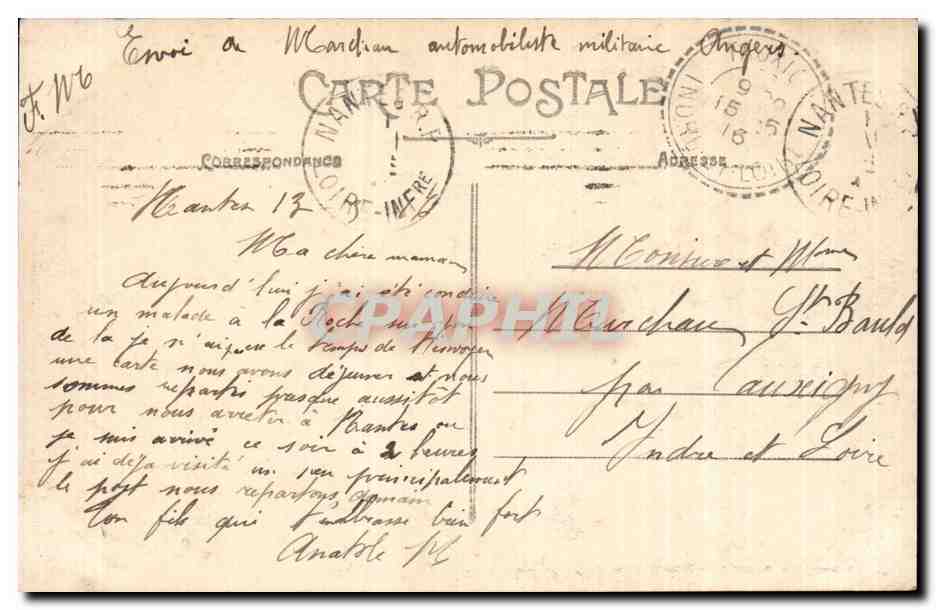 Envoi de Marchau automobiliste militaire Angers
F. M
CARTE POSTALE
NANTES R.P.
LOIRE-INFRE
9
15
15
INDRE-ET-LOIRE
NANTES
LOIRE-IN
CORRESPONDANCE
ADRESSE
Nantes 13
Ma chère maman
Aujourd'hui j'ai été conduire
un malade à la Roche sur yon
de la je n'ai pu le temps de t'envoyer
une carte nous avons déjeuner et nous
sommes repartis presque aussitôt
pour nous arreter à Nantes ou
je suis arrivé ce soir à 2 heures
j'ai déja visité un peu principalement
le port nous repartons demain
Ton fils qui t'embrasse bien fort
Anatole M
Monsieur et Mme
Marchau St Bauld
par Tauxigny
Indre et Loire
CPAPHIL